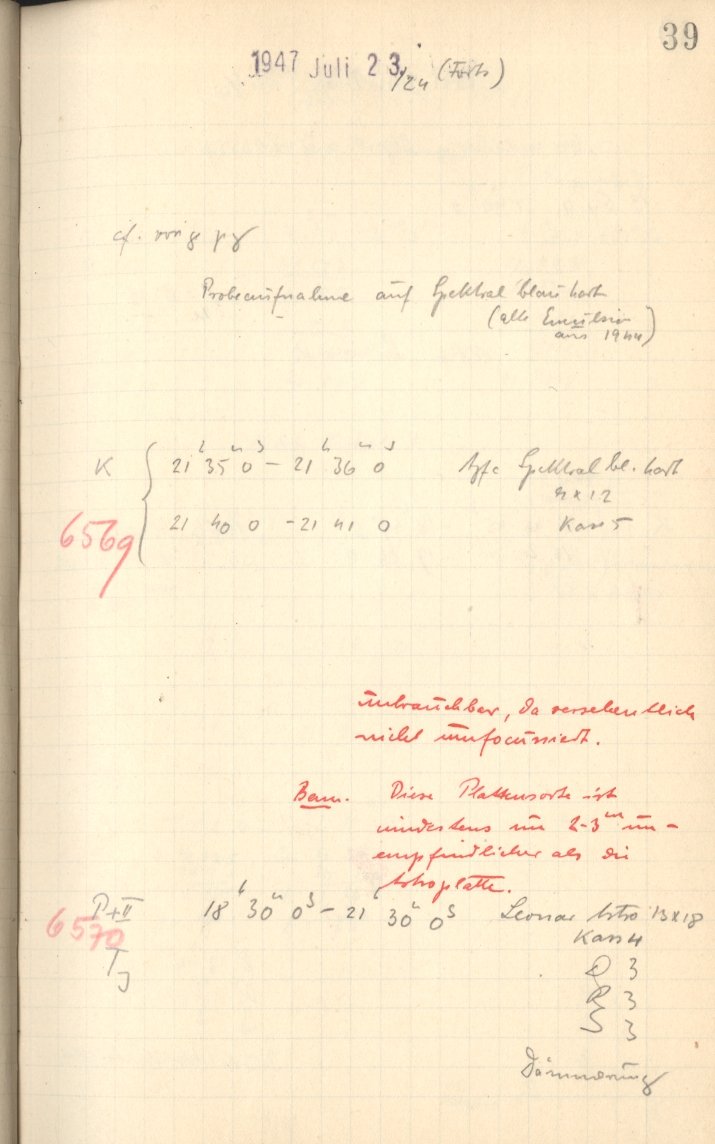 39
1947 Juli 23./24 (Forts)
cf. vorige pg
Probeaufnahme auf Spektral blau hart
(alte Emulsion
aus 1944)
K 21h 35m 0s - 21h 36m 0s Spektral bl. hart
9x12
6569 21 40 0 - 21 41 0 Kass 5
unbrauchbar, da versehentlich
nicht umfocussiert.
Bem. Diese Plattensorte ist
mindestens um 2-3m un-
empfindlicher als die
Astroplatte.
P+II 18h 30m 0s - 21h 30m 0s Leonar Astro 13x18
6570 Kass 4
Q 3
R 3
S 3
Dämmerung